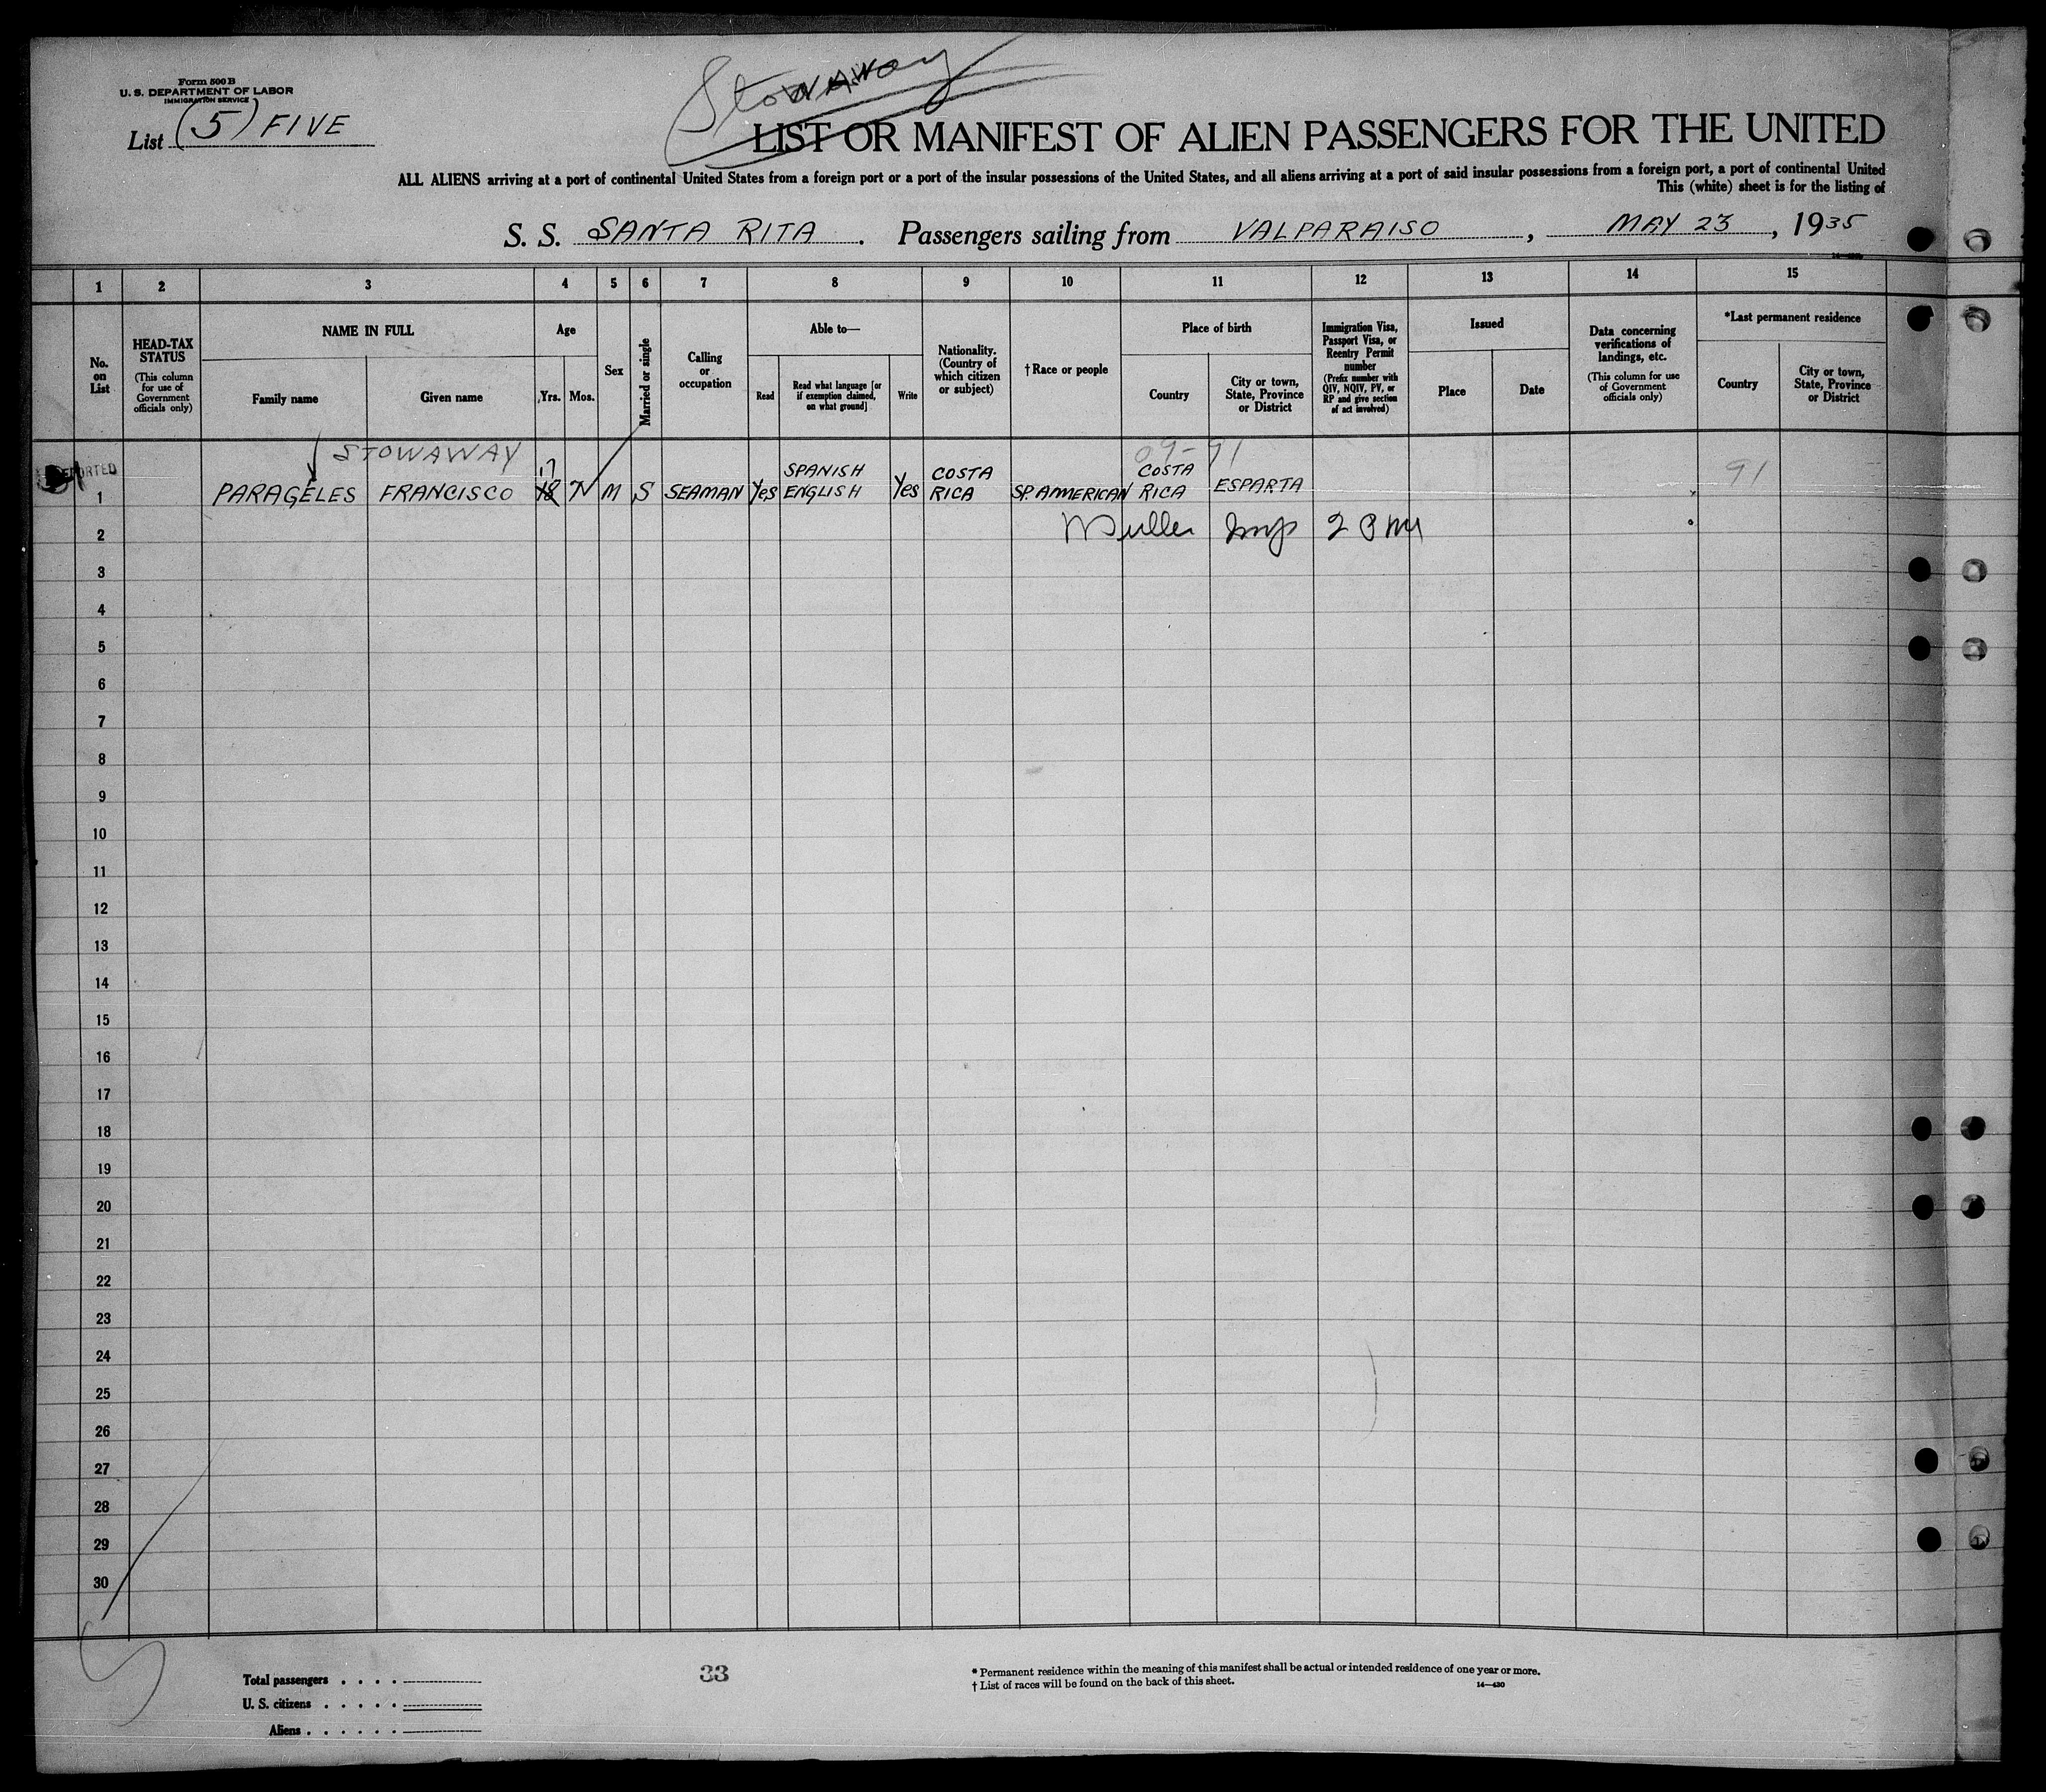 Stowaway
Form 500 B
U. S. DEPARTMENT OF LABOR
IMMIGRATION SERVICE
List (5) FIVE
LIST OR MANIFEST OF ALIEN PASSENGERS FOR THE UNITED
ALL ALIENS arriving at a port of continental United States from a foreign port or a port of the insular possessions of the United States, and all aliens arriving at a port of said insular possessions from a foreign port, a port of continental United
This (white) sheet is for the listing of
S. S. SANTA RITA. Passengers sailing from VALPARAISO, MAY 23, 1935
1 2 3 4 5 6 7 8 9 10 11 12 13 14 15
No. on List
HEAD-TAX STATUS
(This column for use of Government officials only)
NAME IN FULL
Family name
Given name
Age
Yrs.
Mos.
Sex
Married or single
Calling or occupation
Able to—
Read
Read what language [or if exemption claimed, on what ground]
Write
Nationality. (Country of which citizen or subject)
† Race or people
Place of birth
Country
City or town, State, Province or District
Immigration Visa, Passport Visa, or Reentry Permit number
(Prefix number with QIV, NQIV, PV, or RP and give section of act involved)
Issued
Place
Date
Data concerning verifications of landings, etc.
(This column for use of Government officials only)
*Last permanent residence
Country
City or town, State, Province or District
STOWAWAY 09-91
1 PARAGELES FRANCISCO 17 18 M S SEAMAN Yes SPANISH ENGLISH Yes COSTA RICA SP. AMERICAN COSTA RICA ESPARTA 91
2 Muller
3
4
5
6
7
8
9
10
11
12
13
14
15
16
17
18
19
20
21
22
23
24
25
26
27
28
29
30
Total passengers . . . .
U. S. citizens . . . . .
Aliens . . . . . .
33
* Permanent residence within the meaning of this manifest shall be actual or intended residence of one year or more.
† List of races will be found on the back of this sheet.
14—430